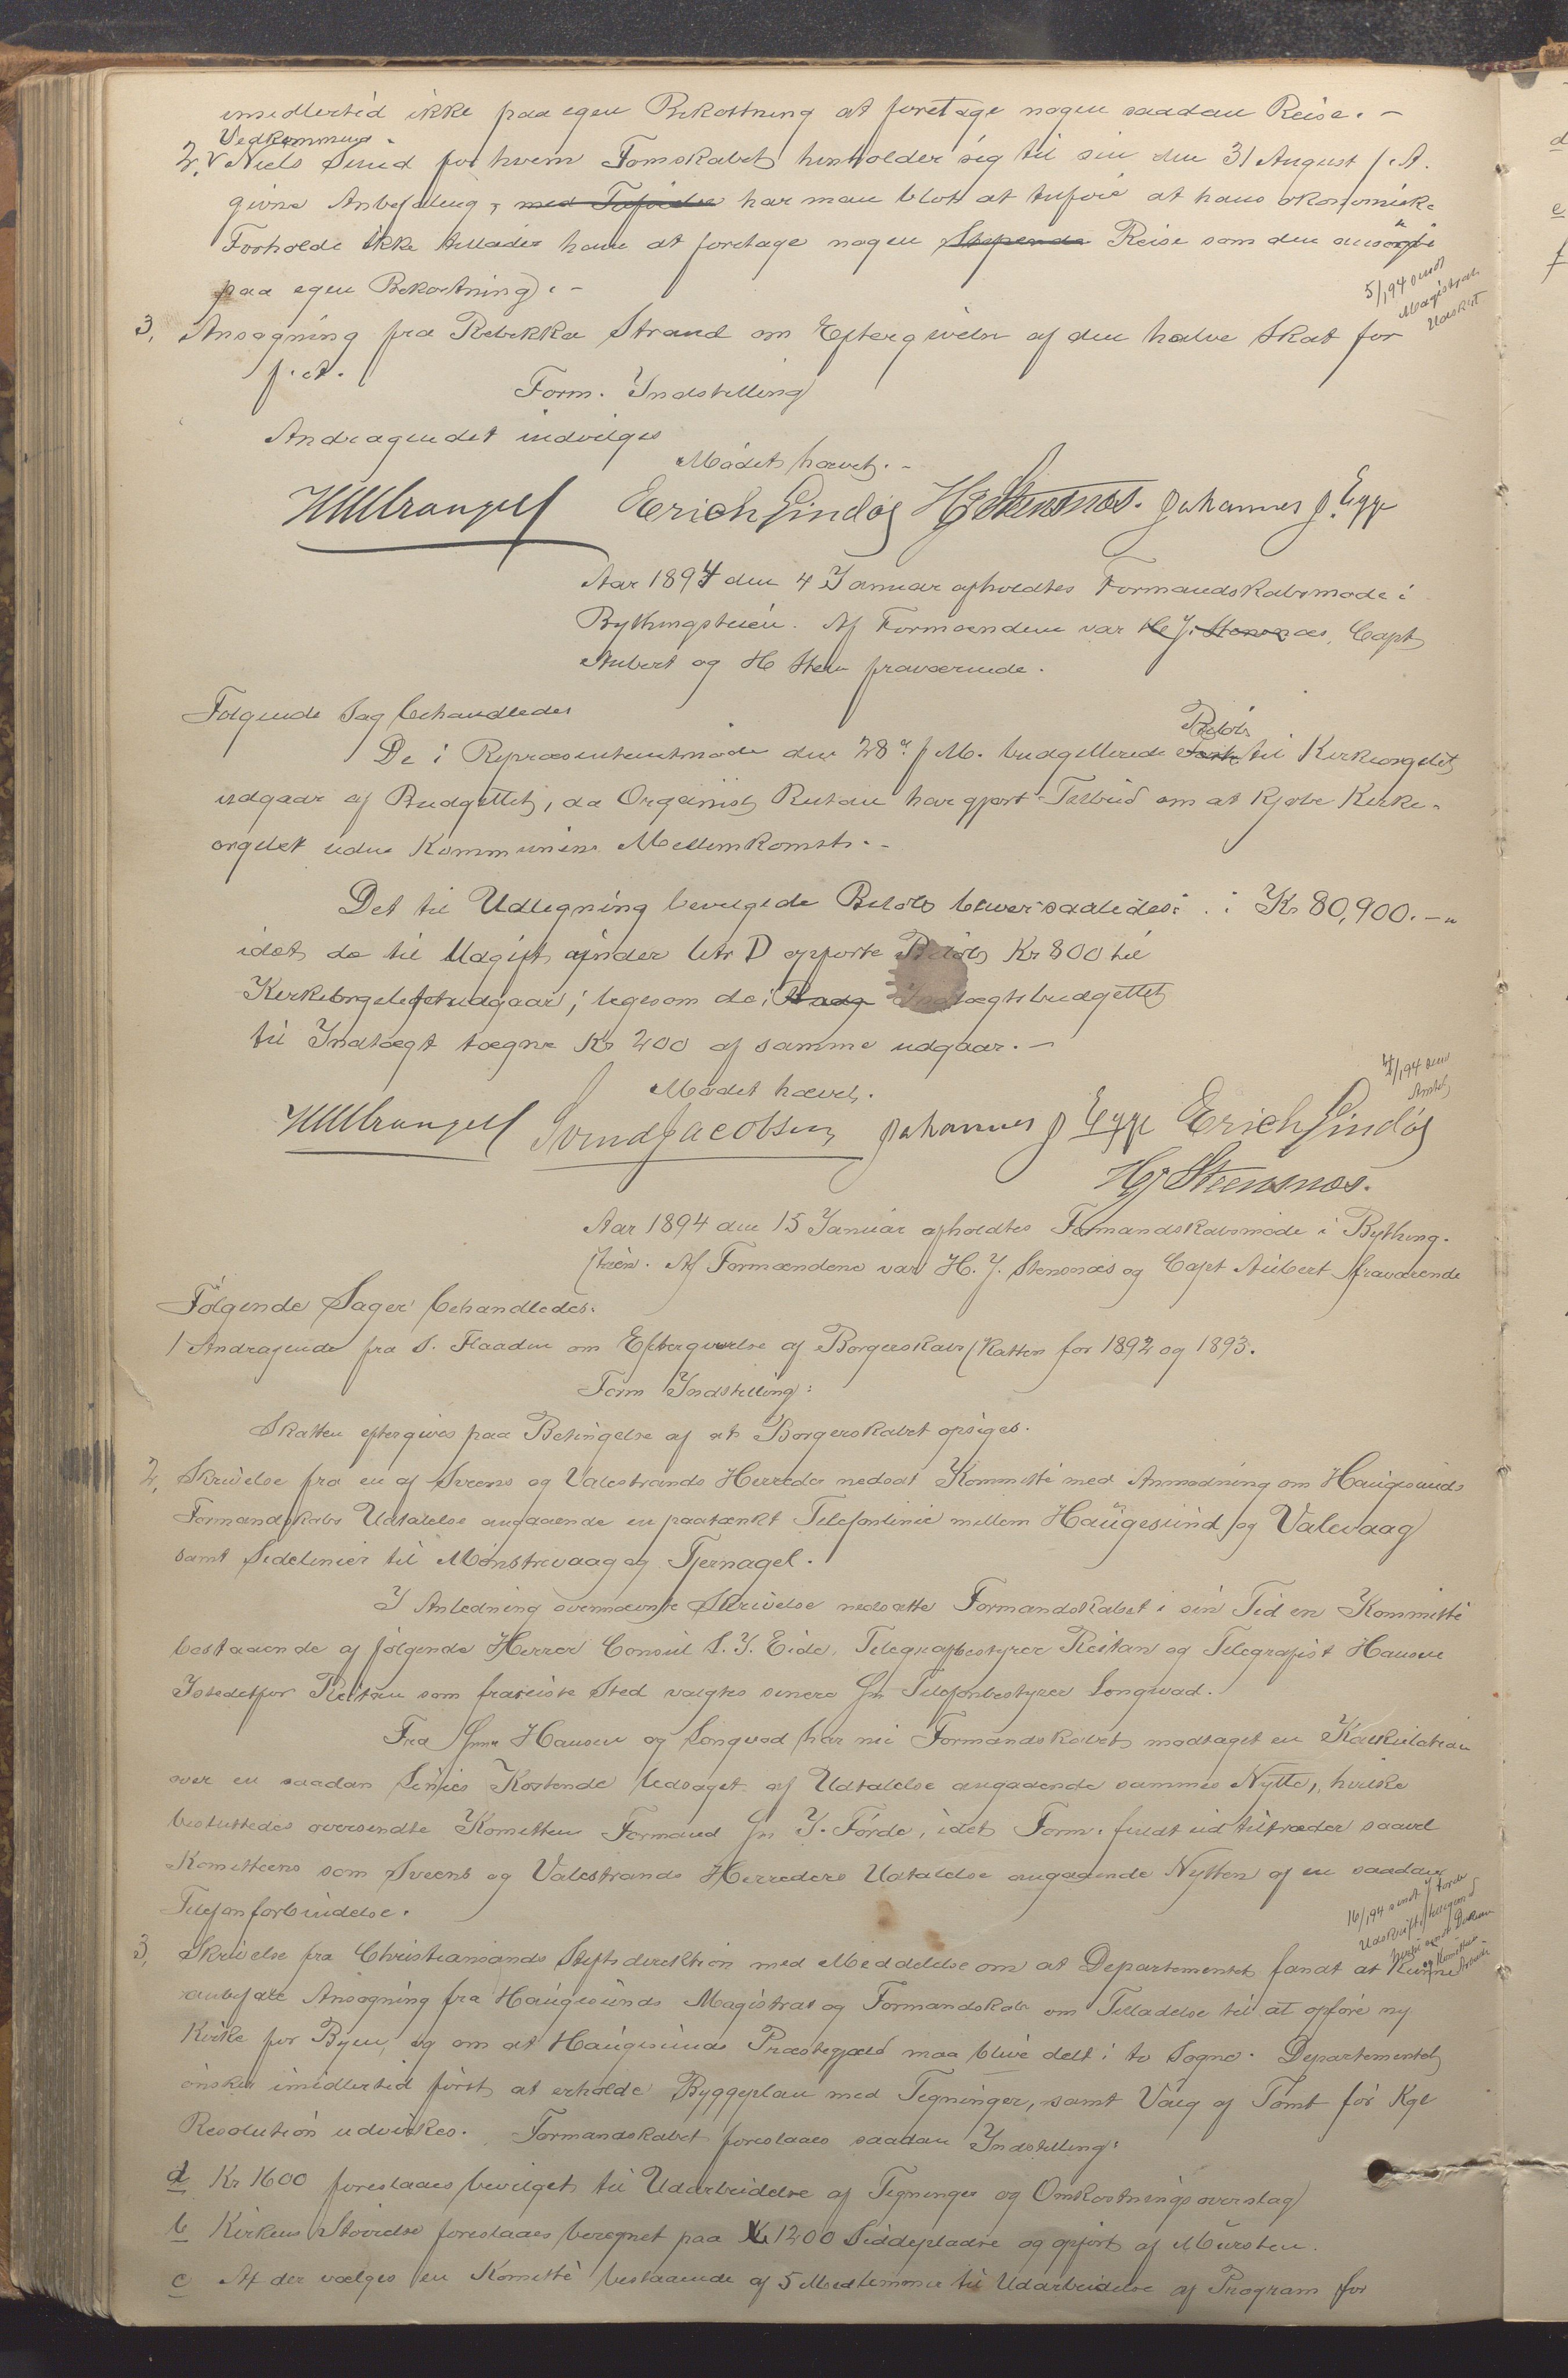 imidlertid ikke paa egen Bekostning at foretage nogen saadan Reise. –
Vedkommende
2, Niels Sund for hvem Fomskabet henholder sig til sin den 31 August f. A.
givne Anbefaling, med Tilføielse har man blot at tilføie at hans økonomiske
Forholde ikke tillader ham at foretage nogen Stipendie Reise som den ansøgte
paa egen Bekostning. –
5/1 94 sendt
Magistrat
Udskrift
3, Ansøgning fra Rebekka Strand om Eftergivelse af den halve Skat for
f. A.
Form. Indstilling
Andragendet indvilges
Mødet hævet. –
Erich Lindøe H J Stensnæs. Johannes J. Egge
Aar 1894 den 4 Januar afholdtes Formandskabsmøde i
Bythingstuen. Af Formændene var H. J. Stensnæs, Capt
Aubert og H fraværende.
Følgende Sag behandledes
Beløb
De i Repræsentantmøde den 28de f. M. budgetterede til Kirkeorgelet
udgaar af Budgettet, da Organist Rutau har gjort Tilbud om at kjøbe Kirke-
orgelet uden Kommunens Mellemkomst. –
Det til Udligning bevilgede Beløb bliver saaledes: Kr 80,900. –
idet de til Udgift under litr D opførte Beløb Kr 800 til
Kirkeorgelet udgaar, ligesom de i Indtægtsbudgettet
til Indtægt tegne Kr 200 af samme udgaar. –
4/1 94
Mødet hævet.
Svend Jacobsen Johannes J Egge Erich Lindøe
H J Stensnæs.
Aar 1894 den 15 Januar afholdtes Formandskabsmøde i Bything-
stuen. Af Formændene var H. J. Stensnæs og Capt Aubert fraværende
Følgende Sager behandledes:
1 Andragende fra S. Flaaden om Eftergivelse af Borgerskabsskatten for 1892 og 1893.
Form Indstilling:
Skatten eftergives paa Betingelse af at Borgerskabet opsiges.
2, Skrivelse fra en af Sveens og Valestrands Herreder nedsat Kommitté med Anmodning om Haugesunds
Formandskabs Udtalelse angaaende en paatænkt Telefonlinie mellem Haugesund og Valevaag
samt Sidelinier til Mønstrevaag og Tjernagel.
I Anledning ovennævnte Skrivelse nedsatte Formandskabet i sin Tid en Kommitté
bestaaende af følgende Herrer Consul S. J. Eide, Telegrafbestyrer Reitan og Telegrafist Hansen
Istedetfor Reitan som frareiste Sted valgtes senere Hr Telefonbestyrer Longvad.
Fra Hrr Hansen og Longvad har nu Formandskabet modtaget en Kalkulation
over en saadan Linies Kostende ledsaget af Udtalelse angaaende sammes Nytte, hvilke
besluttedes oversendte Komitteens Formand Hr J. Førde, idet Form. fuldt ud tiltræder saavel
Komitteens som Sveens og Valestrands Herreders Udtalelse angaaende Nytten af en saadan
Telefonforbindelse.
16/1 94 sendt J Førde
3, Skrivelse fra Christiansands Stiftsdirektion med Meddelelse om at Departementet fandt at kunne
anbefale Ansøgning fra Haugesunds Magistrat og Formandskab om Tilladelse til at opføre ny
Kirke for Byen, og om at Haugesunds Præstegjæld maa blive delt i to Sogne. Departementet
ønsker imidlertid først at erholde Byggeplan med Tegninger, samt Valg af Tomt før Kgl
Resolution udvirkes. Formandskabet foreslaaes saadan Indstilling:
a Kr 1600 foreslaaes bevilget til Udarbeidelse af Tegninger og Omkostningsoverslag
b Kirkens Størrelse foreslaaes beregnet paa 1200 Siddepladse og opført af Mursten.
c At der vælges en Komitté bestaaende af 5 Medlemmer til Udarbeidelse af Program for